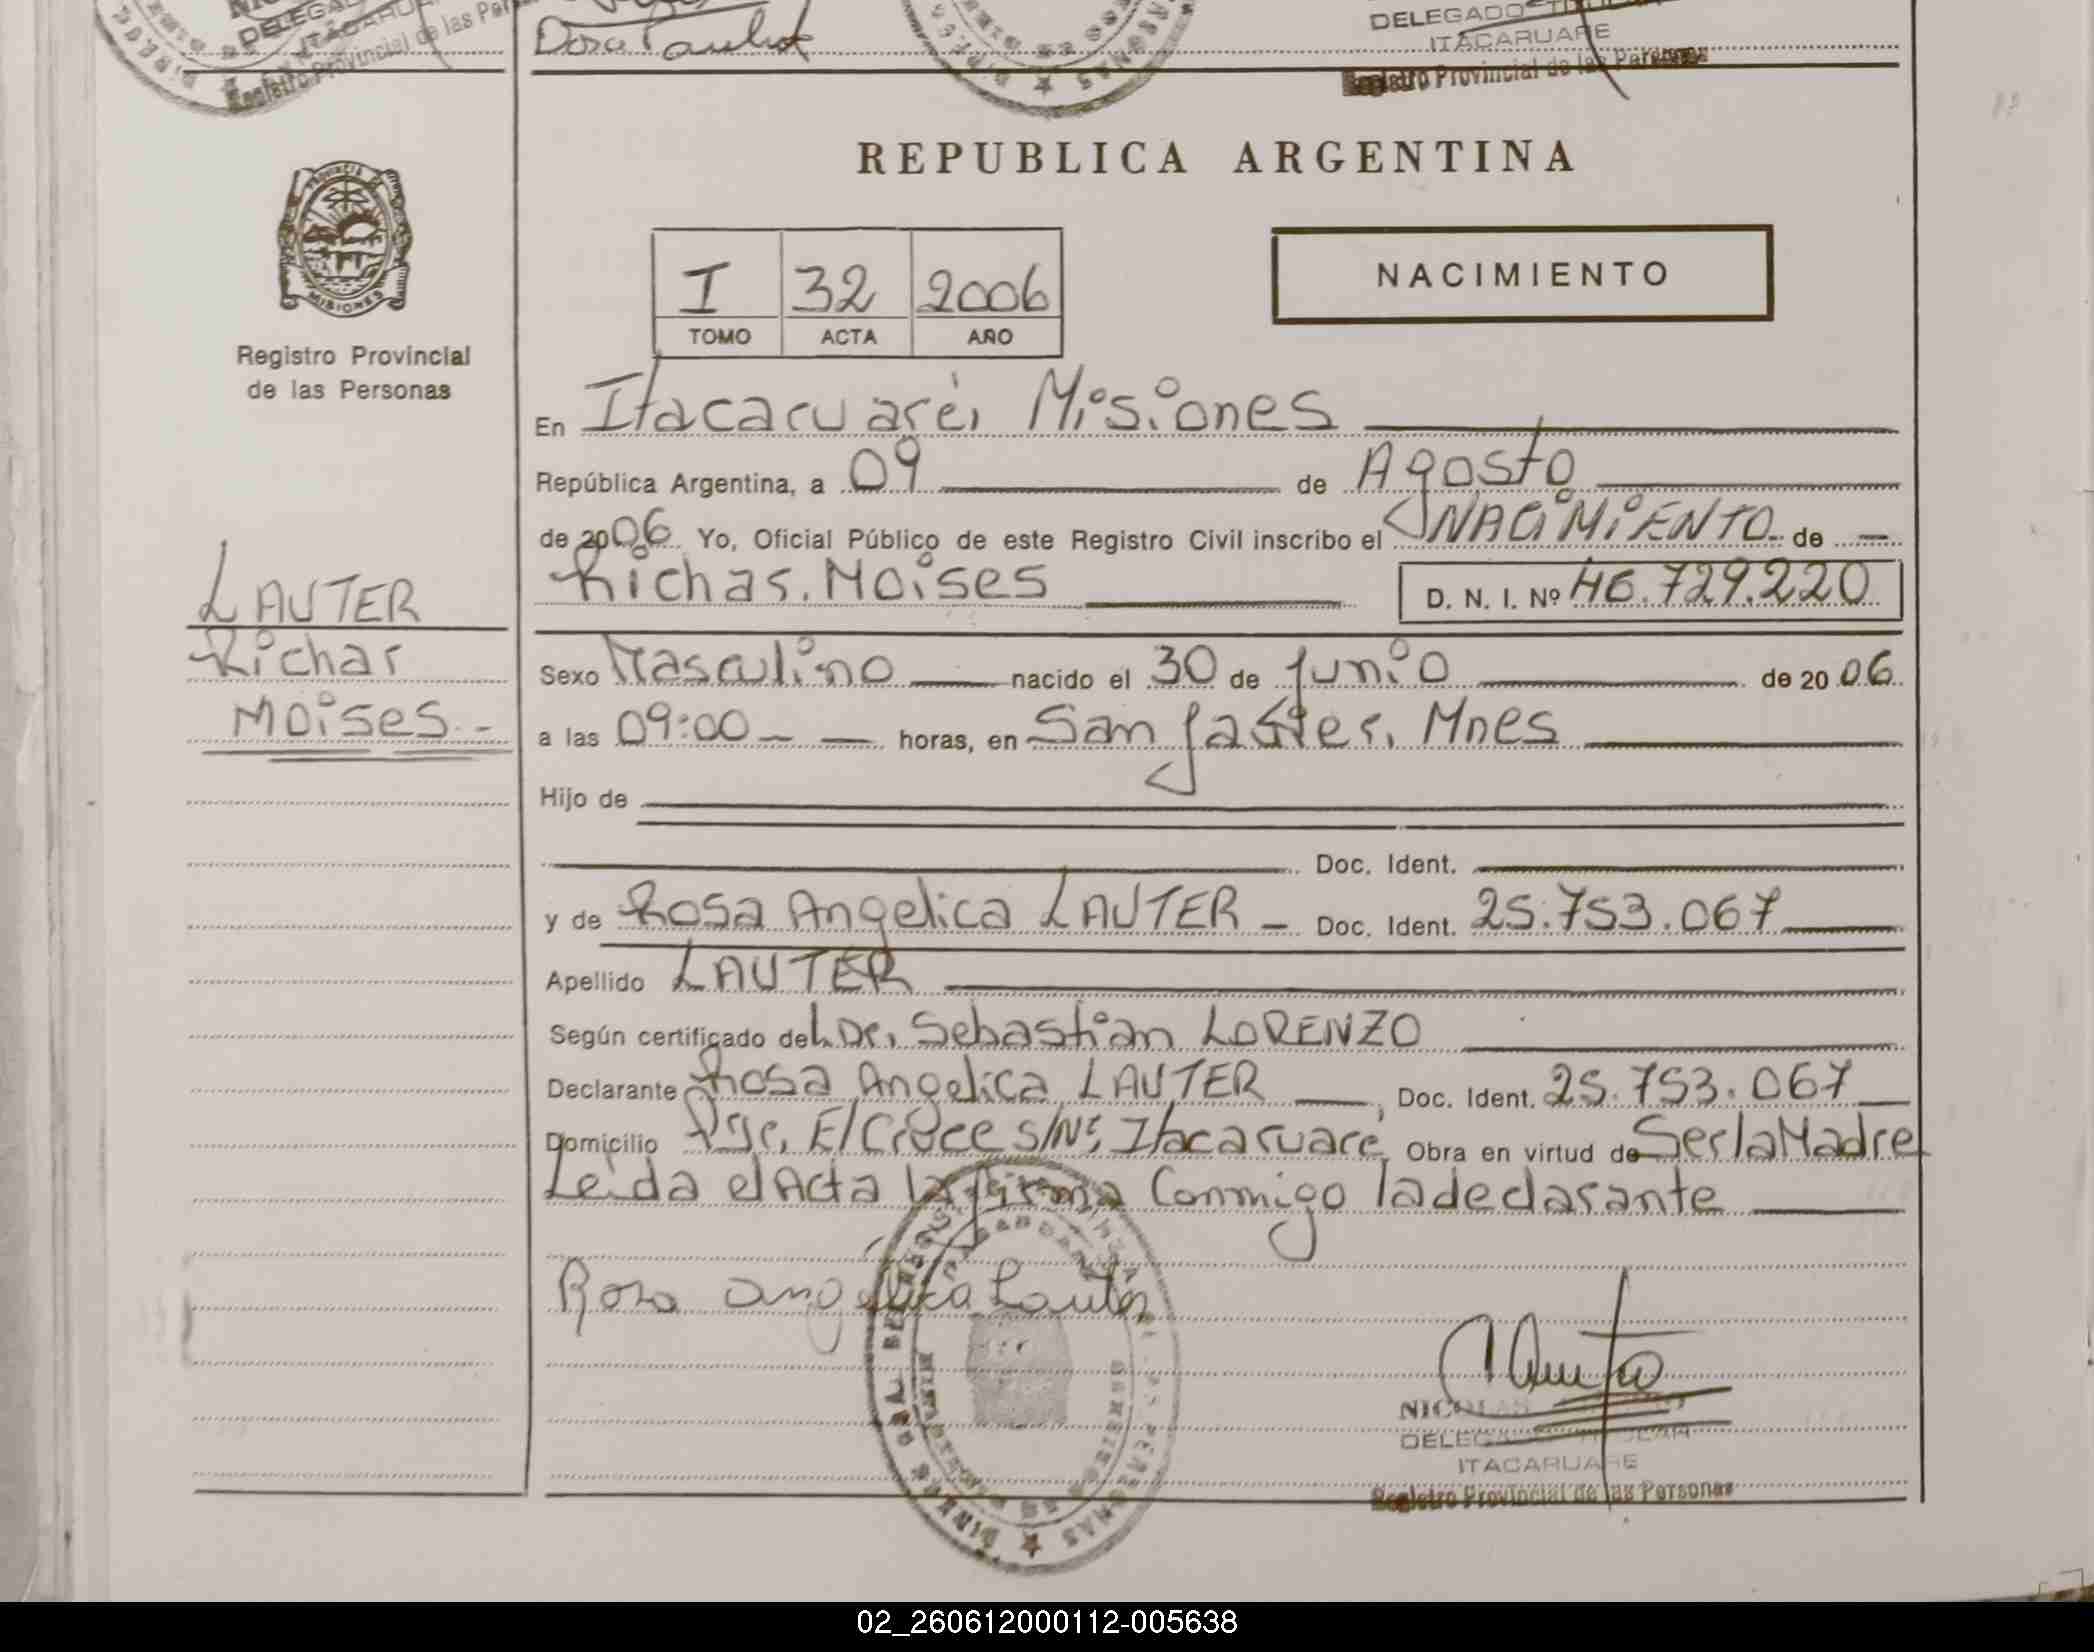 DELEGADO
ITACARUARE
Registro Provincial de las Personas
Dora Paulut
DELEGADO TITULAR
ITACARUARE
Registro Provincial de las Personas
REPUBLICA ARGENTINA
PROVINCIA DE
MISIONES
Registro Provincial
de las Personas
I 32 2006
TOMO ACTA AÑO
NACIMIENTO
En Itacaruaré, Misiones
República Argentina, a 09 de Agosto
de 2006 Yo, Oficial Público de este Registro Civil inscribo el NACIMIENTO de
Richar Moises D. N. I. Nº 46.729.220
LAUTER
Richar
Moises.-
Sexo Masculino nacido el 30 de junio de 2006
a las 09:00 horas, en San Javier, Mnes
Hijo de
Doc. Ident.
y de Rosa Angelica LAUTER Doc. Ident. 25.753.067
Apellido LAUTER
Según certificado del Dr. Sebastian LORENZO
Declarante Rosa Angelica LAUTER, Doc. Ident. 25.753.067
Domicilio s/Nº, Itacaruaré Obra en virtud de Ser la Madre
Leida el Acta la firma Conmigo la declarante
Rosa angelica Lauter
NICOLAS
DELEGADO TITULAR
ITACARUARE
Registro Provincial de las Personas
02_260612000112-005638